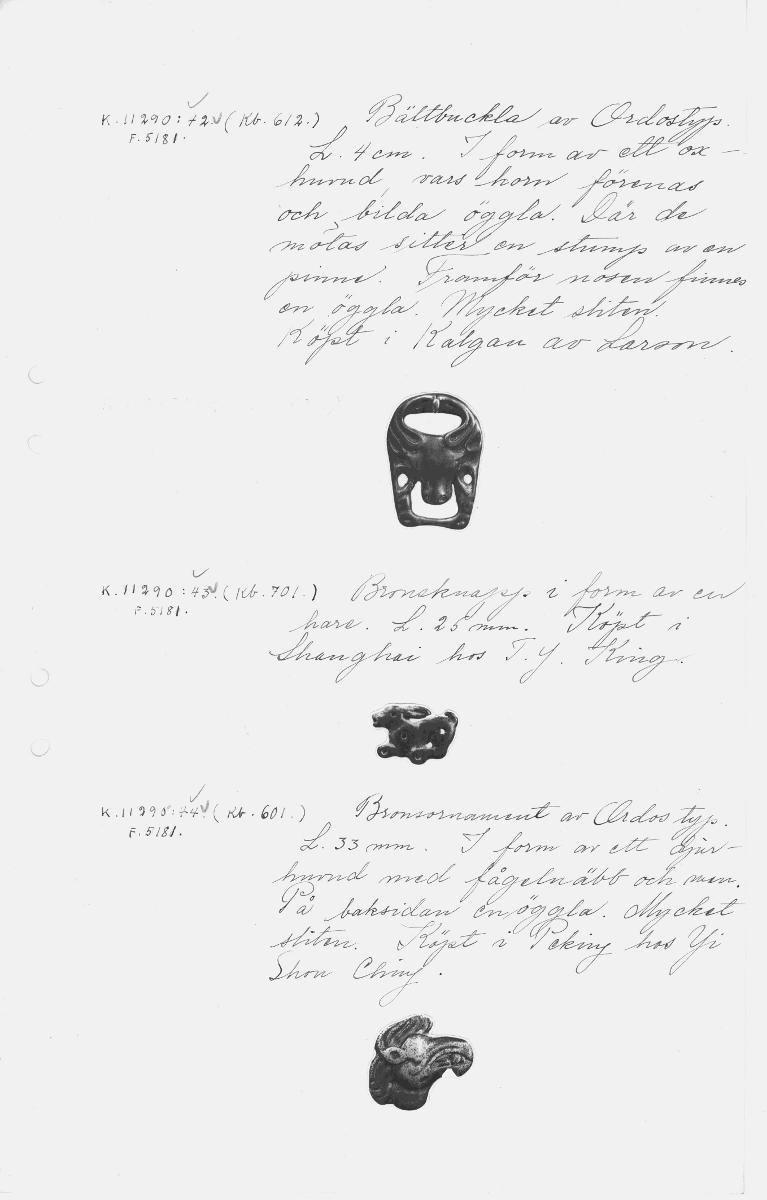 K.11290:42 (Kb. 612.) Bältbuckla av Ordostyp.
F.5181.
L. 4 cm. I form av ett ox-
huvud, vars horn förenas
och bilda öggla. Där de
mötas sitter en stump av en
pinne. Framför nosen finnes
en öggla. Mycket sliten.
Köpt i Kalgan av Larson.
K.11290:43. (Kb. 701.) Bronsknapp i form av en
F.5181.
hare. L. 25 mm. Köpt i
Shanghai hos T. Y. King.
K.11290:44. (Kb. 601.) Bronsornament av Ordostyp.
F.5181.
L. 33 mm. I form av ett djur-
huvud med fågelnäbb och
På baksidan en öggla. Mycket
sliten. Köpt i Peking hos Yi
Shou Ching.